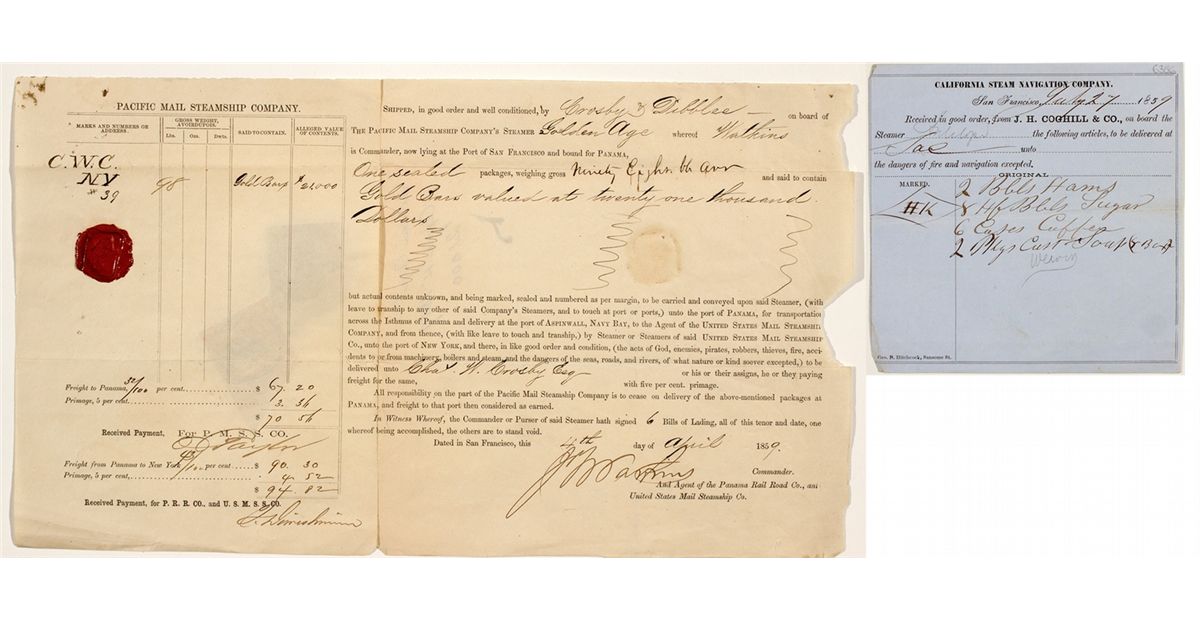 PACIFIC MAIL STEAMSHIP COMPANY.
MARKS AND NUMBERS OR ADDRESS.
GROSS WEIGHT, AVOIRDUPOIS.
Lbs. Ozs. Dwts.
SAID TO CONTAIN.
ALLEGED VALUE OF CONTENTS.
C.W.C.
NY
# 39
98
Gold Bars
$ 21,000
Freight to Panama, 32/100 per cent. $ 67. 20
Primage, 5 per cent. 3. 36
$ 70 56
Received Payment, For P. M. S. S. CO.
Freight from Panama to New York /100 per cent. $ 90. 30
Primage, 5 per cent. 4. 52
$ 94. 82
Received Payment, for P. R. R. CO., and U. S. M. S. S. CO.
SHIPPED, in good order and well conditioned, by Crosby & Dibblee on board of
THE PACIFIC MAIL STEAMSHIP COMPANY'S STEAMER Golden Age whereof Watkins
is Commander, now lying at the Port of SAN FRANCISCO and bound for PANAMA,
One sealed packages, weighing gross Ninety Eight lb and said to contain
Gold Bars valued at twenty one thousand
Dollars
but actual contents unknown, and being marked, sealed and numbered as per margin, to be carried and conveyed upon said Steamer, (with
leave to tranship to any other of said Company's Steamers, and to touch at port or ports,) unto the port of PANAMA, for transportation
across the Isthmus of Panama and delivery at the port of ASPINWALL, NAVY BAY, to the Agent of the UNITED STATES MAIL STEAMSHIP
COMPANY, and from thence, (with like leave to touch and tranship,) by Steamer or Steamers of said UNITED STATES MAIL STEAMSHIP
CO., unto the port of NEW YORK, and there, in like good order and condition, (the acts of God, enemies, pirates, robbers, thieves, fire, acci-
dents to or from machinery, boilers and steam, and the dangers of the seas, roads, and rivers, of what nature or kind soever excepted,) to be
delivered unto Chas. W. Crosby Esq or his or their assigns, he or they paying
freight for the same, with five per cent. primage.
All responsibility on the part of the Pacific Mail Steamship Company is to cease on delivery of the above-mentioned packages at
PANAMA, and freight to that port then considered as earned.
In Witness Whereof, the Commander or Purser of said Steamer hath signed 6 Bills of Lading, all of this tenor and date, one
whereof being accomplished, the others are to stand void.
Dated in San Francisco, this 4th day of April 1859.
Commander.
And Agent of the Panama Rail Road Co., and
United States Mail Steamship Co.
CALIFORNIA STEAM NAVIGATION COMPANY.
San Francisco, July 27 1859
Received in good order, from J. H. COGHILL & CO., on board the
Steamer the following articles, to be delivered at
Sac unto
the dangers of fire and navigation excepted.
ORIGINAL
MARKED.
HK
2 Bbls Hams
8 Hf Bbls Sugar
6 Cases Coffee
2 Pkgs
Geo. B. Hitchcock, Sansome St.